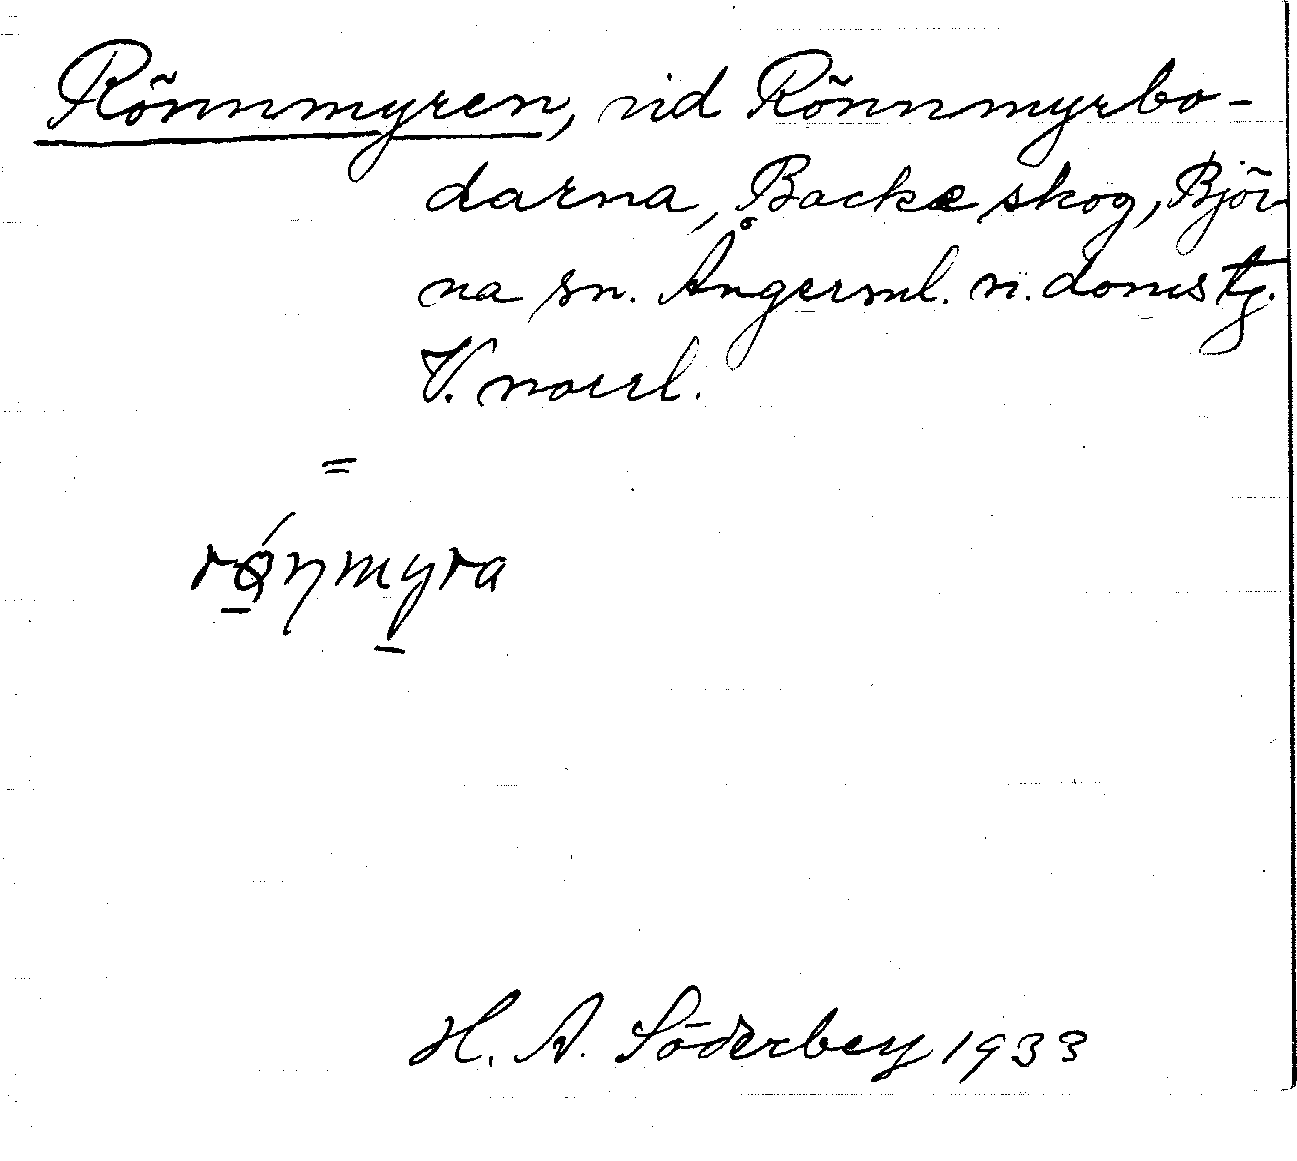 Rönnmyren, vid Rönnmyrbo-
darna, Backe skog, Björ-
na sn. Ångerml. n. doms tg.
V. norrl.
=
rǿnmyra
H. A. Söderbey 1933